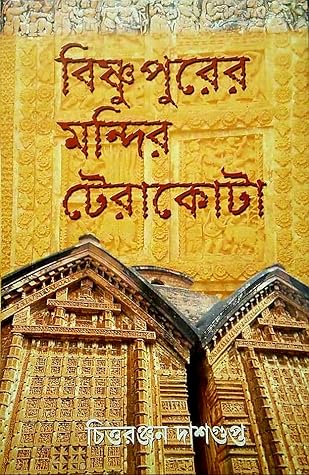 বিষ্ণুপুরের
মন্দির
টেরাকোটা
চিত্তরঞ্জন দাশগুপ্ত